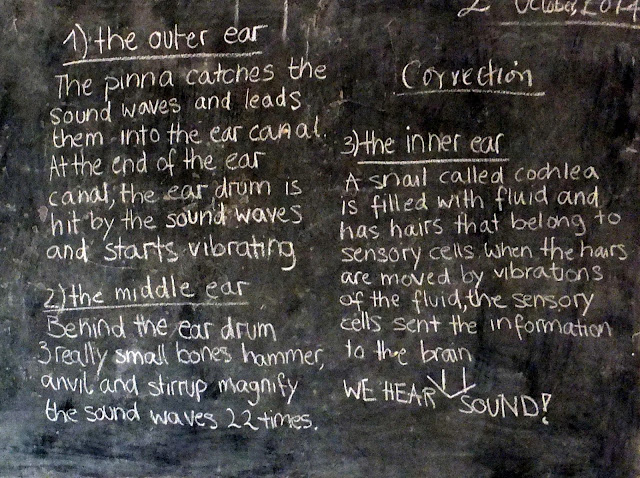 2 October, 2014
1) the outer ear
The pinna catches the
sound waves and leads
them into the ear canal.
At the end of the ear
canal, the ear drum is
hit by the sound waves
and starts vibrating
2) the middle ear
Behind the ear drum
3 really small bones hammer,
anvil and stirrup magnify
the sound waves 22 times.
Correction
3) the inner ear
A snail called cochlea
is filled with fluid and
has hairs that belong to
sensory cells when the hairs
are moved by vibrations
of the fluid, the sensory
cells sent the information
to the brain
WE HEAR SOUND!